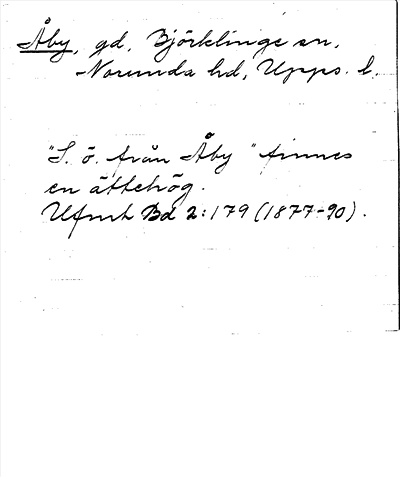 Åby, gd, Björklinge sn,
Norunda hd, Upps. l.
"S. ö. från Åby" finnes
en ättehög.
Ufmt Bd 2:179 (1877-90).